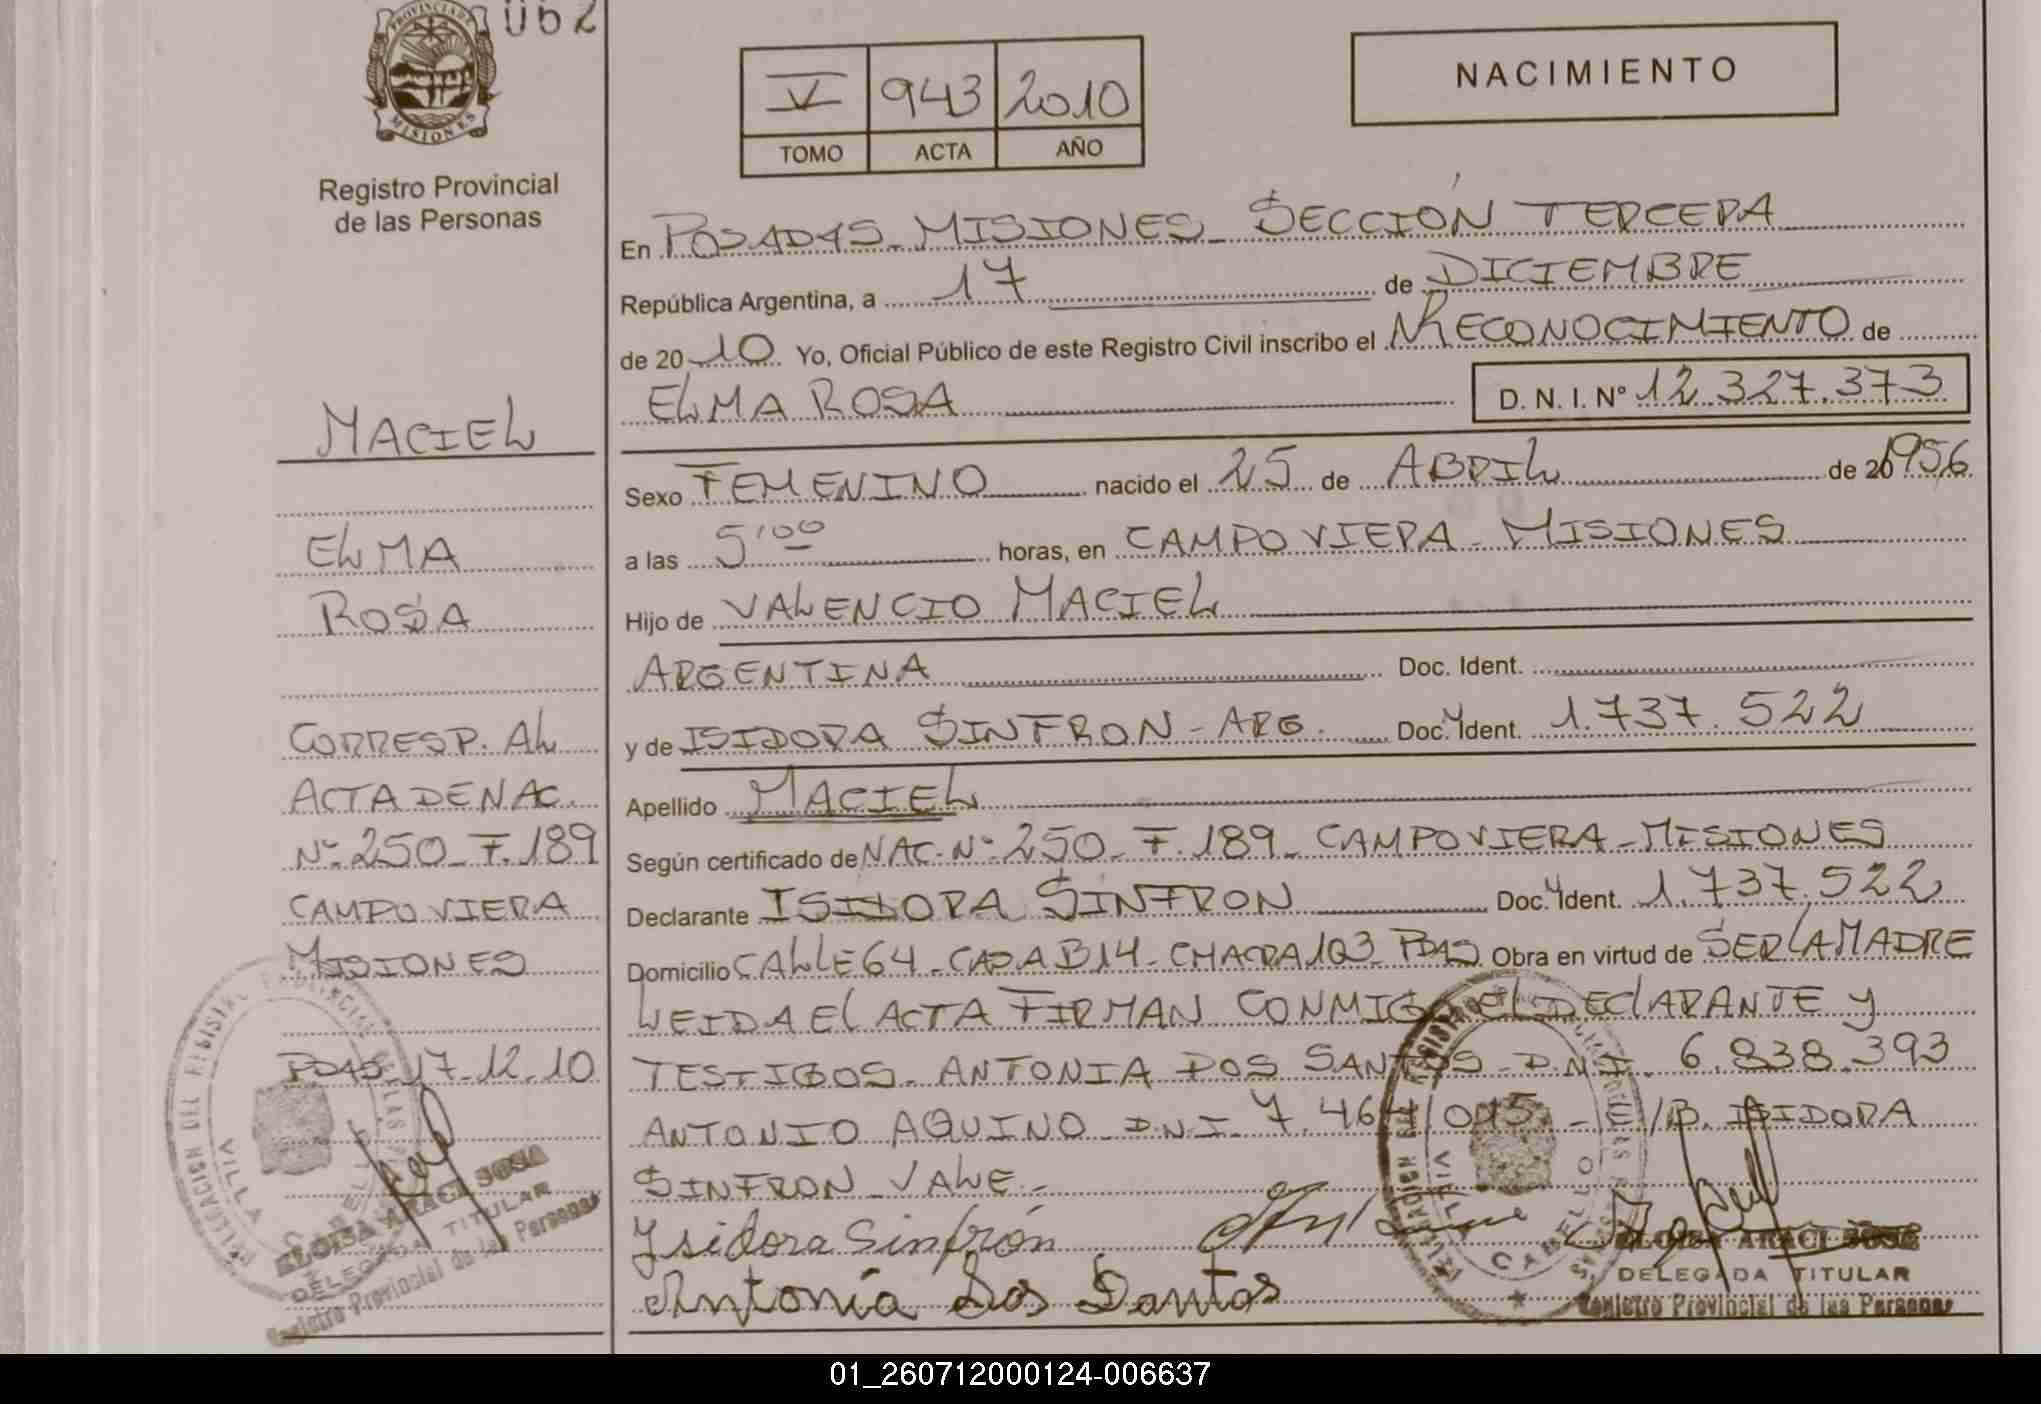 062
PROVINCIA DE
MISIONES
Registro Provincial
de las Personas
MACIEL
ELMA
ROSA
CORRESP. AL
ACTA DE NAC.
Nº 250 - F. 189
CAMPO VIERA
MISIONES
PDAS 17.12.10
DELEGACION DEL REGISTRO PROVINCIAL DE LAS
VILLA CABELLO
ELOISA ARACI SOSA
DELEGADA TITULAR
Registro Provincial de las Personas
V 943 2010
TOMO ACTA AÑO
NACIMIENTO
En POSADAS - MISIONES - SECCIÓN TERCERA
República Argentina, a 17 de DICIEMBRE
de 2010 Yo, Oficial Público de este Registro Civil inscribo el RECONOCIMIENTO de
ELMA ROSA D. N. I. Nº 12.327.373
Sexo FEMENINO nacido el 25 de ABRIL de 1956
a las 5'00 horas, en CAMPO VIERA - MISIONES
Hijo de VALENCIO MACIEL
ARGENTINA Doc. Ident.
y de ISIDORA SINFRON - ARG. Doc. Ident. 1.737.522
Apellido MACIEL
Según certificado de NAC. Nº 250 - F. 189 - CAMPO VIERA - MISIONES
Declarante ISIDORA SINFRON Doc. Ident. 1.737.522
Domicilio CALLE 64 - CASA B14 - CHACRA 103 PDAS Obra en virtud de SER LA MADRE
LEIDA EL ACTA FIRMAN CONMIGO EL DECLARANTE Y
TESTIGOS - ANTONIA DOS SANTOS - D.N.I. 6.838.393
ANTONIO AQUINO D.N.I. 7.464.095 - E/B. ISIDORA
SINFRON VALE -
Ysidora Sinfrón
Antonia Dos Santos
VILLA CABELLO
ELOISA ARACI SOSA
DELEGADA TITULAR
Registro Provincial de las Personas
01_260712000124-006637